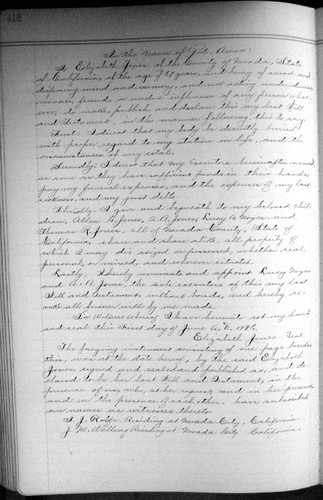 418
In the Name of God. Amen:
I, Elizabeth Jones of the County of Nevada, State
of California, of the age of 87 years, and being of sound and
disposing mind and memory, and not acting under duress
menace, fraud, or undue influence of any person
do make, publish and declare this my last Will
and Testament, in the manner following, that is to say
First: I direct that my body be decently buried
with proper regard to my station in life, and the
circumstances of my estate.
Secondly: I direct that my Executors hereinafter named
as soon as they have sufficient funds in their hands,
pay my funeral expenses, and the expenses of my last
sickness, and my just debts.
Thirdly. I give and bequeath to my beloved chil-
dren, Allen Jones, A. B. Jones, Lucy A. Noyes, and
Thomas R. Jones, all of Nevada County, State of
California, share and share alike, all property of
which I may die seized or possessed, whether real
personal, or mixed, and wherever situated.
Lastly: I hereby nominate and appoint Lucy Noyes
and A. B. Jones, the sole executors of this my last
Will and Testament, without bonds, and hereby re-
voke all former wills by me made.
In Witness Whereof I have hereunto set my hand
and seal this First day of June A. D. 1896.
Elizabeth Jones Seal
The foregoing instrument consisting of one page besides
this, was at the date hereof, by the said Elizabeth
Jones signed and sealed and published as, and de-
clared to be her last Will and Testament, in the
presence of us, who, at her request and in her presence
and in the presence of each other, have subscribed
our names as witnesses thereto.
T. J. Rolfe Residing at Nevada City, California.
J. M. Walling Residing at Nevada City California.